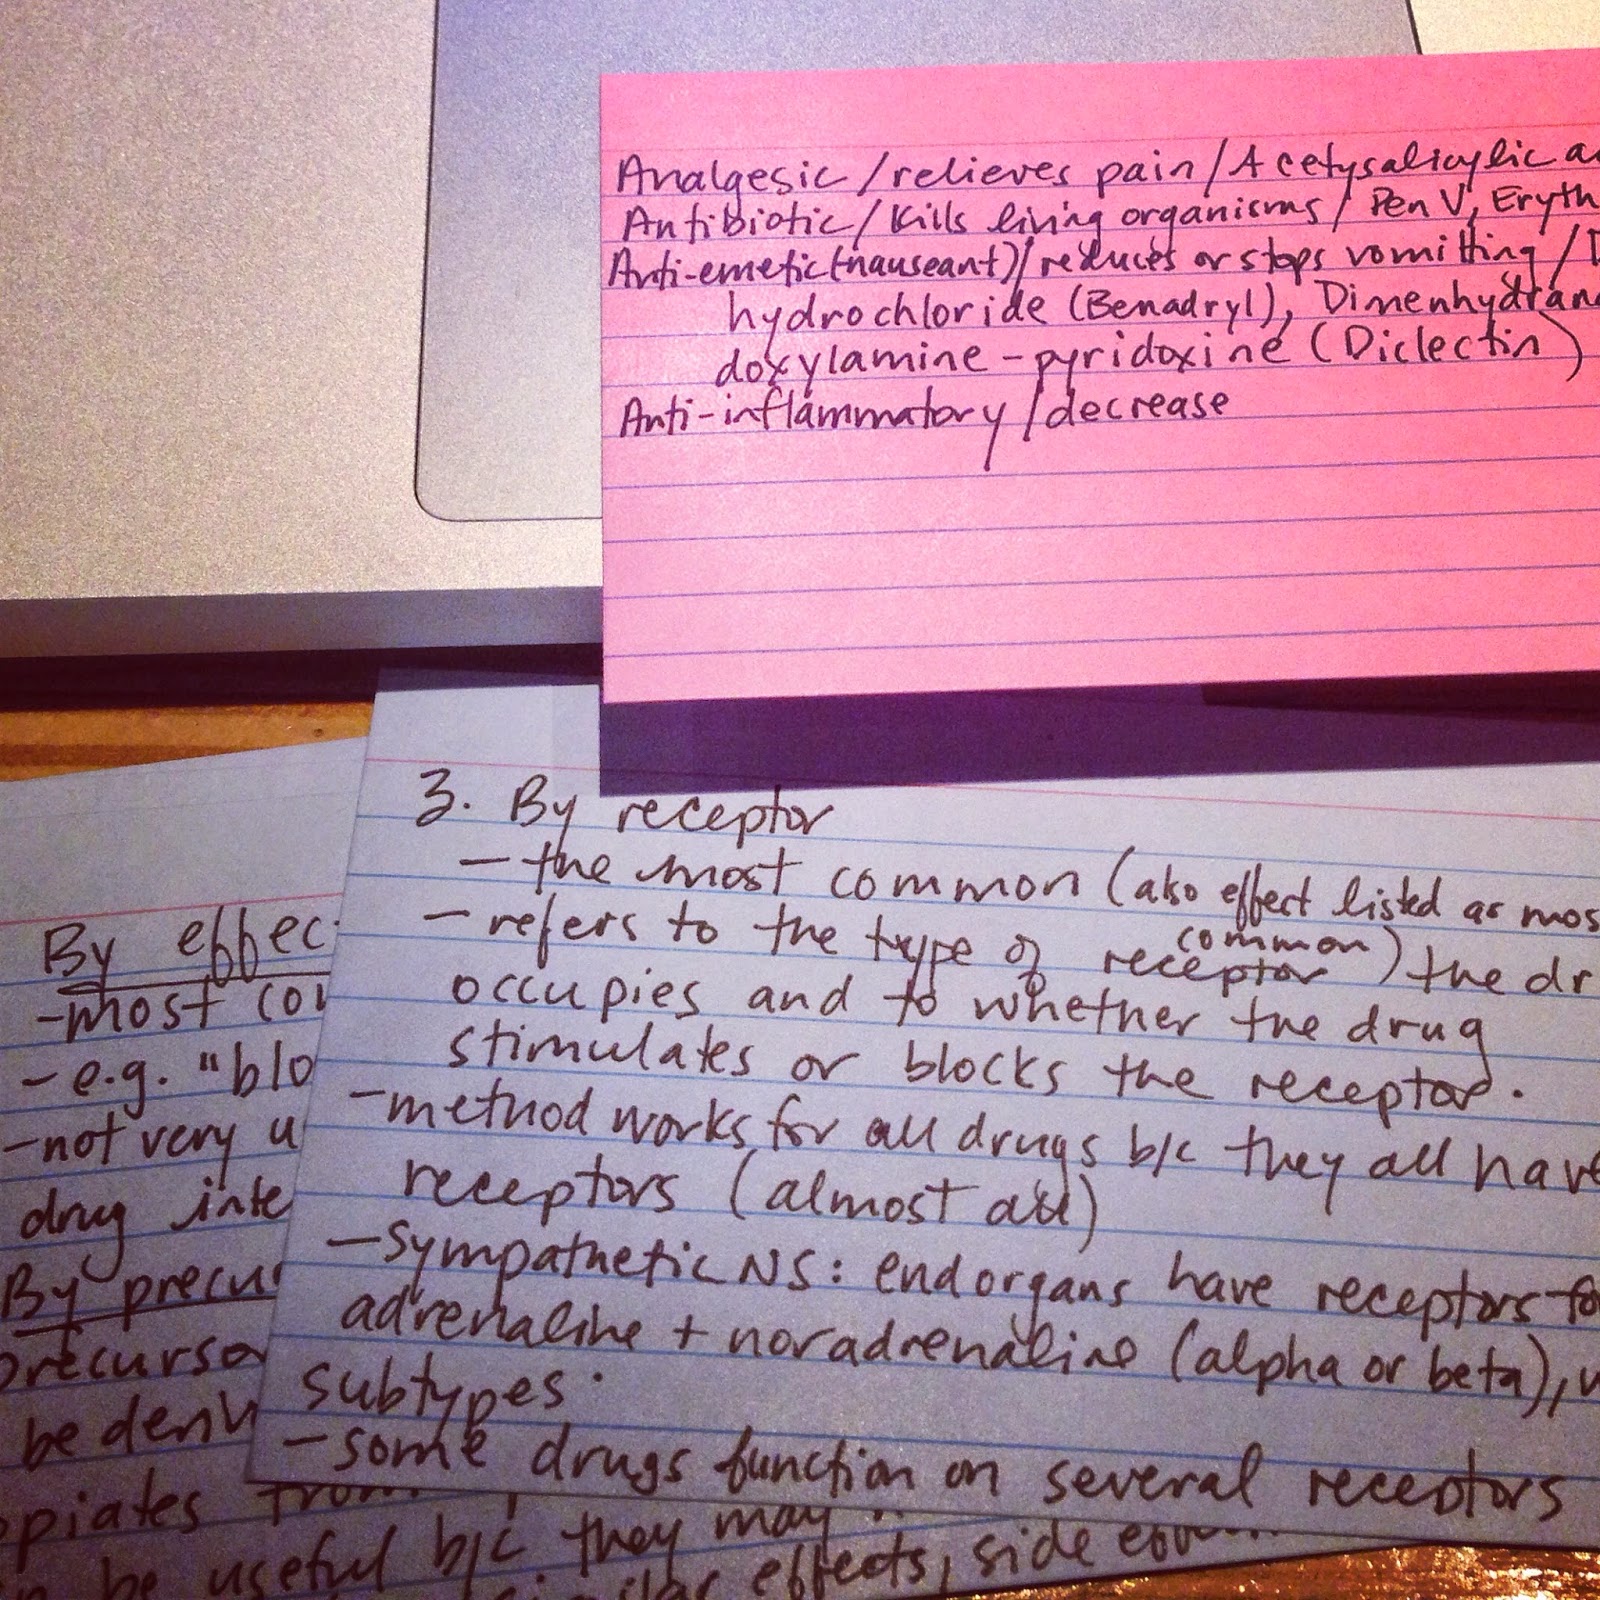 Analgesic / relieves pain / Acetysalicylic
Antibiotic / Kills living organisms / Pen V, Eryth
Anti-emetic (nauseant) / reduces or stops vomitting /
hydrochloride (Benadryl), Dimenhydran
doxylamine - pyridoxine (Diclectin)
Anti-inflammatory / decrease
3. By receptor
- the most common (also effect listed as mos
common)
- refers to the type of receptor the dr
occupies and to whether the drug
stimulates or blocks the receptor.
- method works for all drugs b/c they all have
receptors (almost all)
- Sympathetic NS: end organs have receptors fo
adrenaline + noradrenaline (alpha or beta),
subtypes.
- some drugs function on several receptors
By effec
- most co
- e.g. "blo
- not very u
drug inte
By precur
precurso
be deriv
opiates from
be useful b/c they may
effects, side